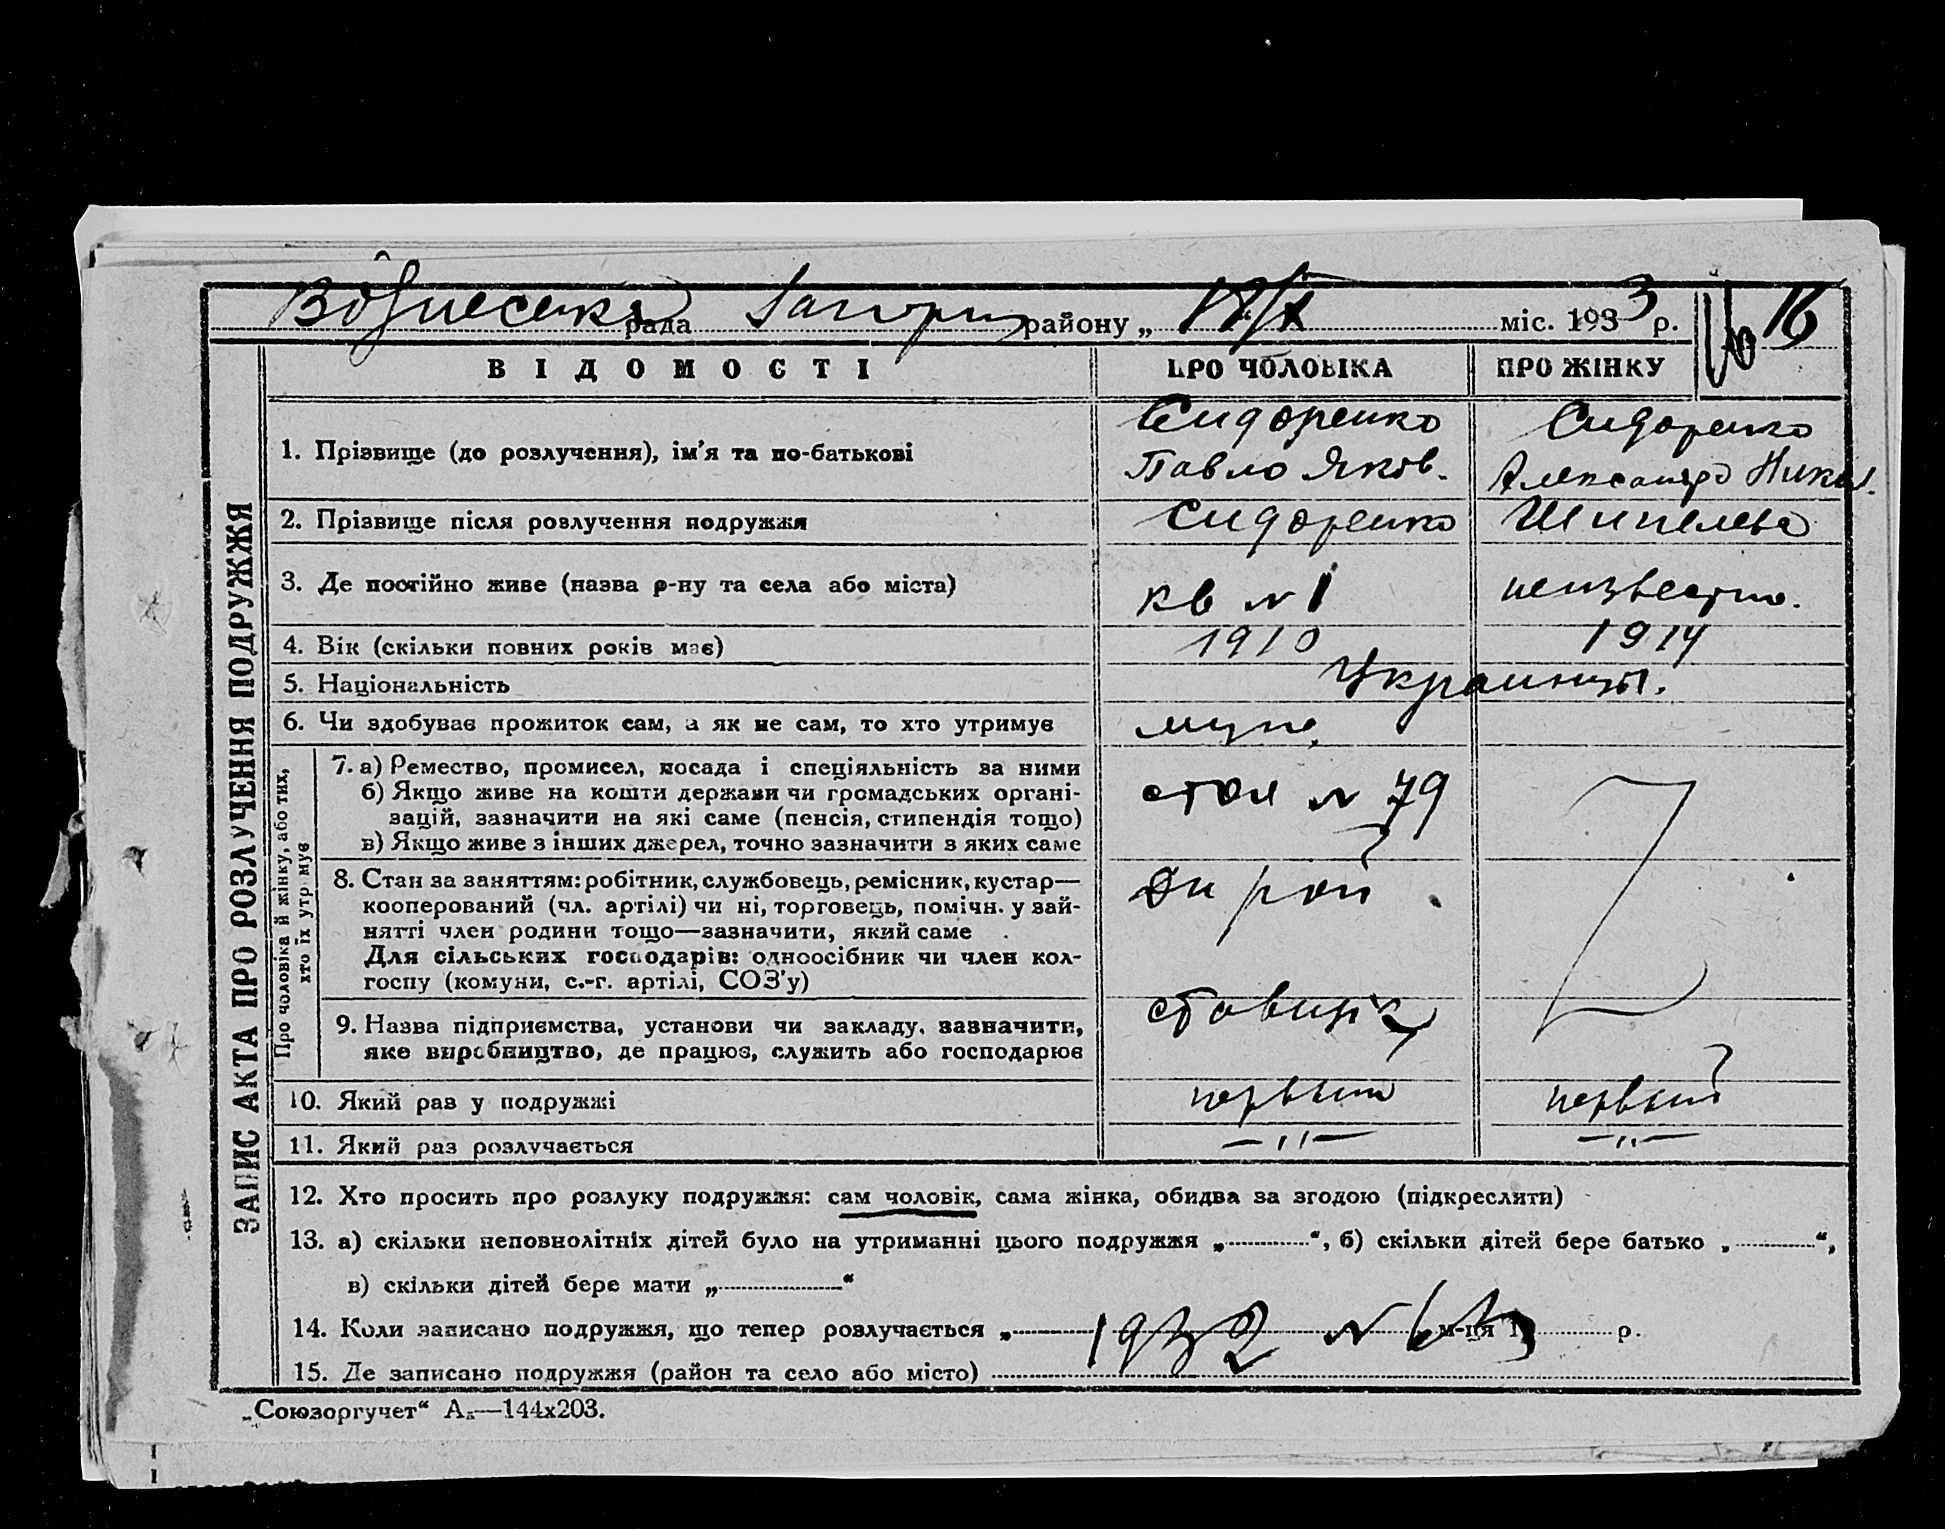 Вознесенка рада Запориз району „ 17/X міс. 1933 р. № 16
ЗАПИС АКТА ПРО РОЗЛУЧЕННЯ ПОДРУЖЖЯ
ВІДОМОСТІ ПРО ЧОЛОВІКА ПРО ЖІНКУ
1. Прізвище (до розлучення), ім'я та по-батькові
Сидоренко
Павло Яков.
Сидоренко
Александра Никол.
2. Прізвище після розлучення подружжя Сидоренко Шипелева
3. Де постійно живе (назва р-ну та села або міста) кв № 1 неизвестно.
4. Вік (скільки повних років має) 1910 1914
5. Національність Украинцы.
6. Чи здобуває прожиток сам, а як не сам, то хто утримує
Про чоловіка й жінку, або тих,
хто їх утримує
7. а) Ремество, промисел, посада і спеціяльність за ними
б) Якщо живе на кошти держави чи громадських органі-
зацій, зазначити на які саме (пенсія, стипендія тощо)
в) Якщо живе з інших джерел, точно зазначити з яких саме
стол № 79
8. Стан за заняттям: робітник, службовець, ремісник, кустар—
кооперований (чл. артілі) чи ні, торговець, помічн. у зай-
нятті член родини тощо—зазначити, який саме
Для сільських господарів: одноосібник чи член кол-
госпу (комуни, с.-г. артілі, СОЗ'у)
9. Назва підприємства, установи чи закладу, зазначити,
яке виробництво, де працює, служить або господарює
10. Який раз у подружжі первый первый
11. Який раз розлучається —〃— —〃—
12. Хто просить про розлуку подружжя: сам чоловік, сама жінка, обидва за згодою (підкреслити)
13. а) скільки неповнолітніх дітей було на утриманні цього подружжя „ “, б) скільки дітей бере батько „ “,
в) скільки дітей бере мати „ “
14. Коли записано подружжя, що тепер розлучається „ 1932 № м-ця р.
15. Де записано подружжя (район та село або місто)
„Союзоргучет“ А₅—144х203.